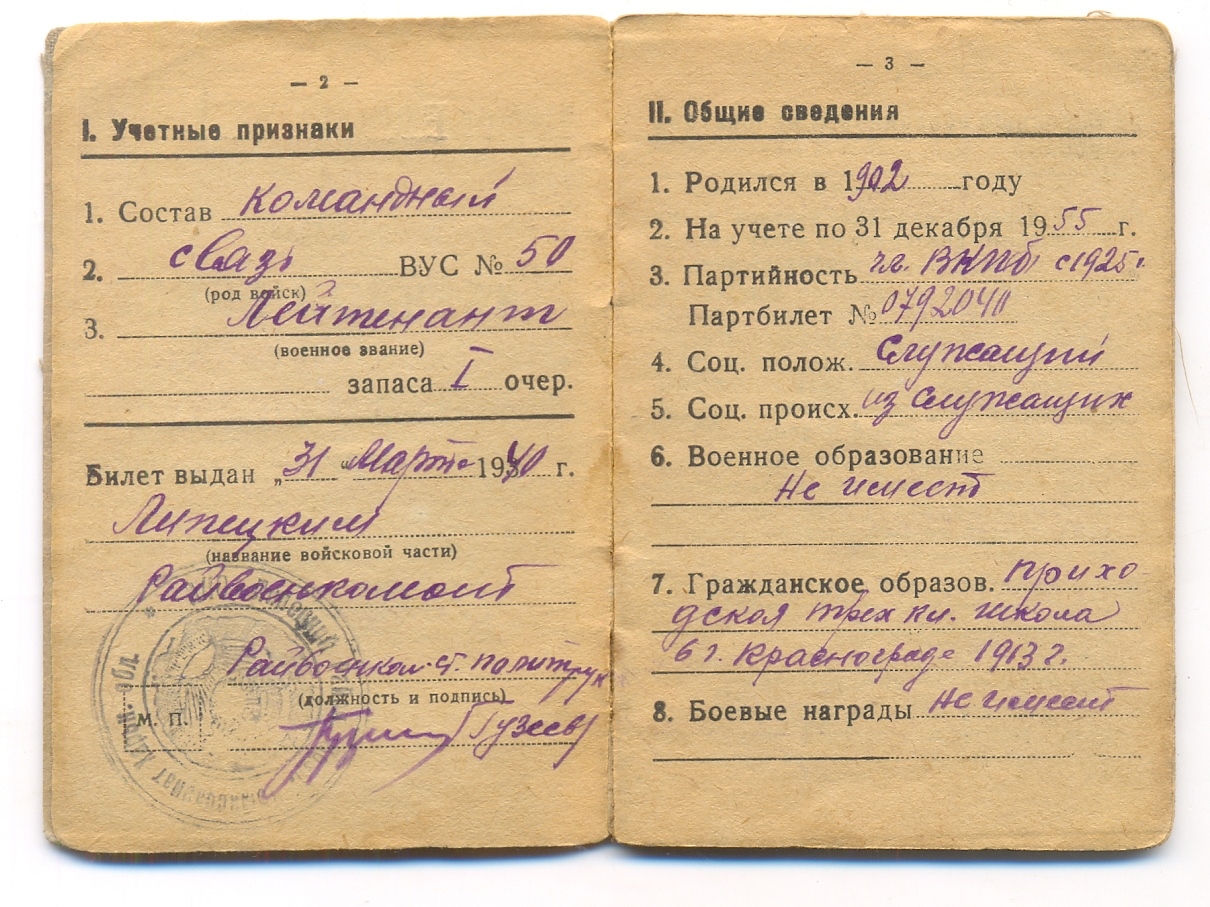 — 2 —
I. Учетные признаки
1. Состав командный
2. связь ВУС № 50
(род войск)
3. Лейтенант
(военное звание)
запаса I очер.
Билет выдан „31 “ Марта 1940 г.
Липецким
(название войсковой части)
Райвоенкомат
Райвоенком ст. политрук
(должность и подпись)
М. П. Гузеев
— 3 —
II. Общие сведения
1. Родился в 1902 году
2. На учете по 31 декабря 1955 г.
3. Партийность чл. ВКПб с 1925г.
Партбилет № 0792040
4. Соц. полож. Служащий
5. Соц. происх. из служащих
6. Военное образование
Не имеет
7. Гражданское образов. прихо
дская трех кл. школа
в г. Краснограде 1913 г.
8. Боевые награды Не имеет